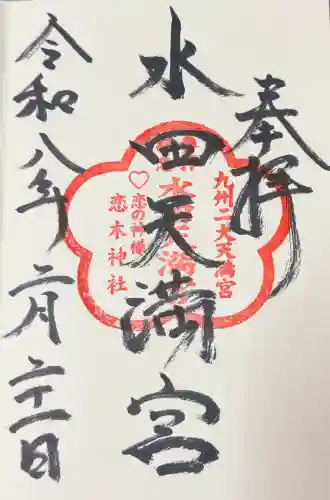 奉拝
水田天満宮
九州二大天満宮
水田天満宮
♡恋の神様
恋木神社
令和八年二月二十一日